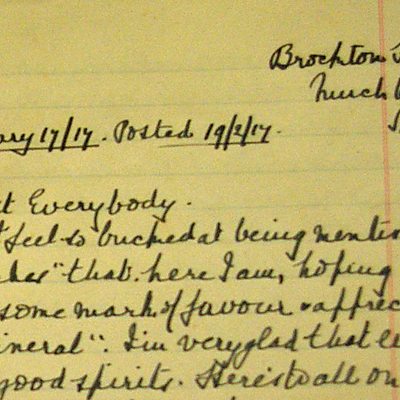 Brockton
Much
ary 17/17. Posted 19/2/17.
Everybody.
feel so bucked at being mentio
that here I am, hoping
some mark of favour & apprec
ineral". I'm very glad that
good spirits. Here's to all on